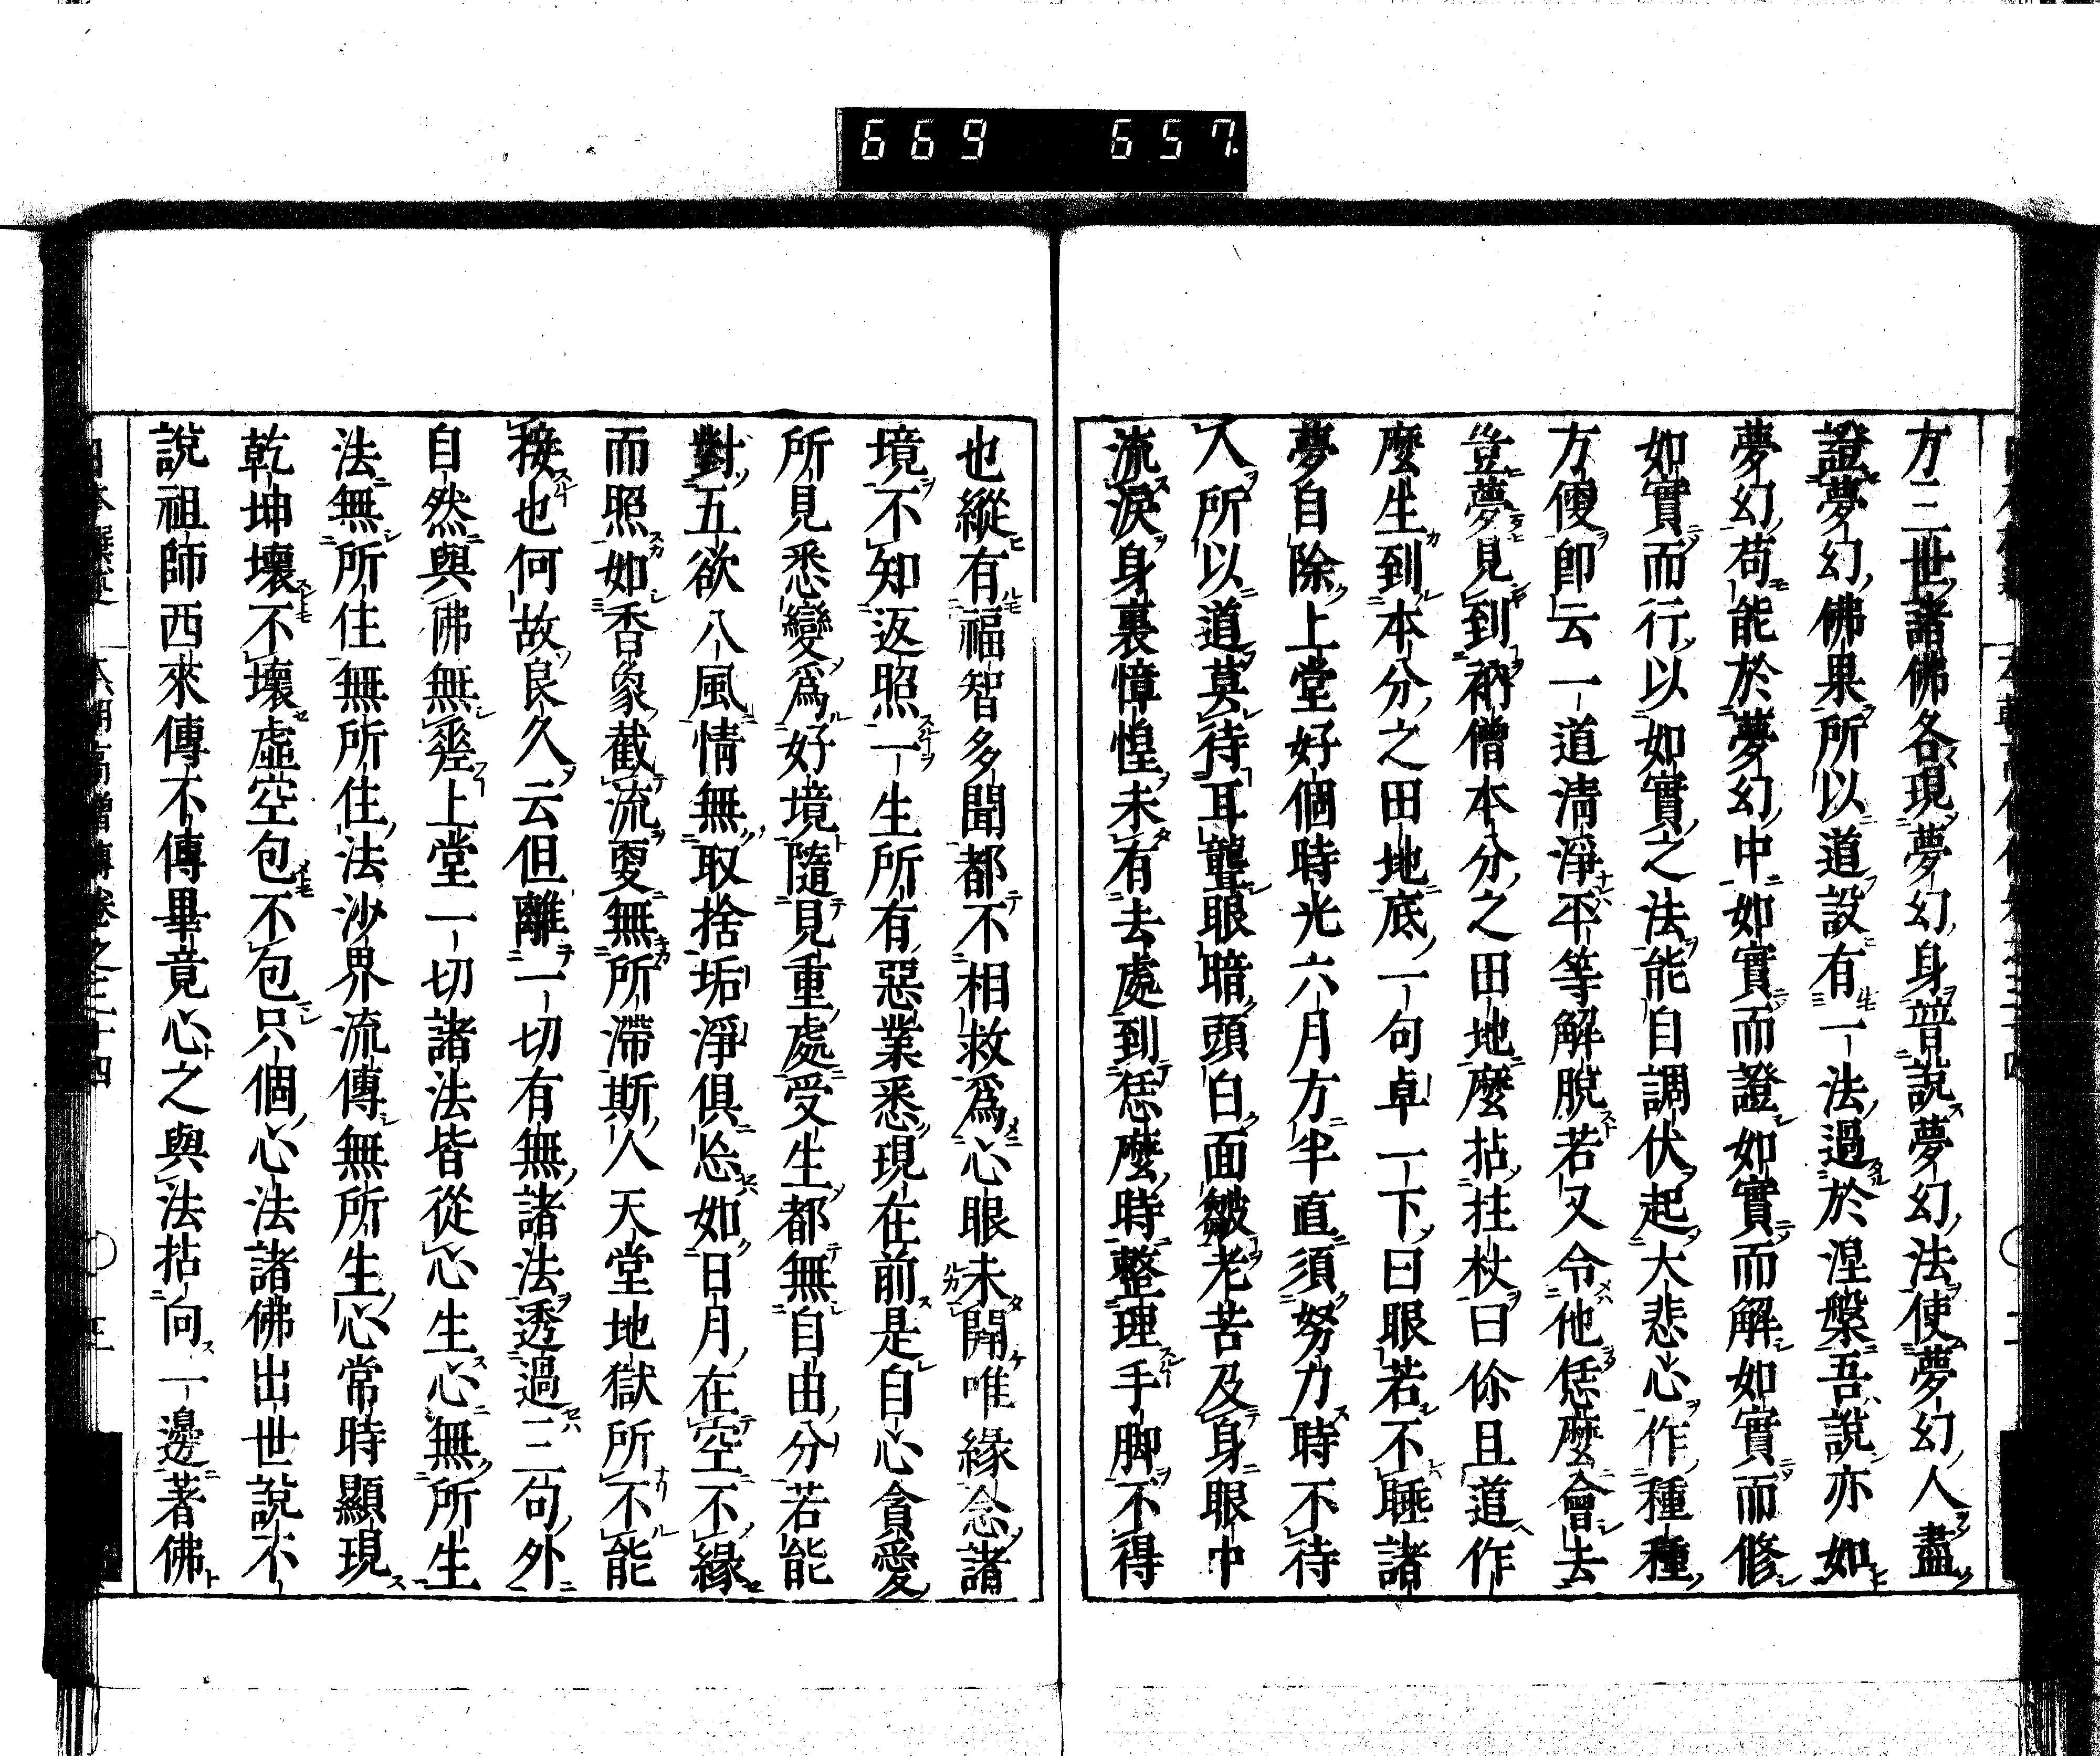 669 657
方三世諸佛各現夢幻身普說夢幻法使夢幻人盡
證夢幻佛果所以道設有一法過於涅槃吾說亦如
夢幻苟能於夢幻中如實而證如實而解如實而修
如實而行以如實之法能自調伏起大悲心作種種
方便卽云一道淸淨平等解脫若又令他恁麼會去
豈夢見到衲僧本分之田地麼拈拄杖曰你且道作
麼生到本分之田地底一句卓一下曰眼若不睡諸
夢自除上堂好個時光六月方半直須努力時不待
人所以道莫待耳聾眼暗頭白面皺老苦及身眼中
流淚身裏慞惶未有去處到恁麼時整理手脚不得
也縱有福智多聞都不相救爲心眼未開唯緣念諸
境不知返照一生所有惡業悉現在前是自心貪愛
所見悉變爲好境隨見重處受生都無自由分若能
對五欲八風情無取捨垢淨俱忘如日月在空不緣
而照如香象截流更無所滯斯人天堂地獄所不能
接也何故良久云但離一切有無諸法透過三句外
自然與佛無差上堂一切諸法皆從心生心無所生
法無所住無所住法沙界流傳無所生心常時顯現
乾坤壞不壞虛空包不包只個心法諸佛出世說不
說祖師西來傳不傳畢竟心之與法拈向一邊著佛